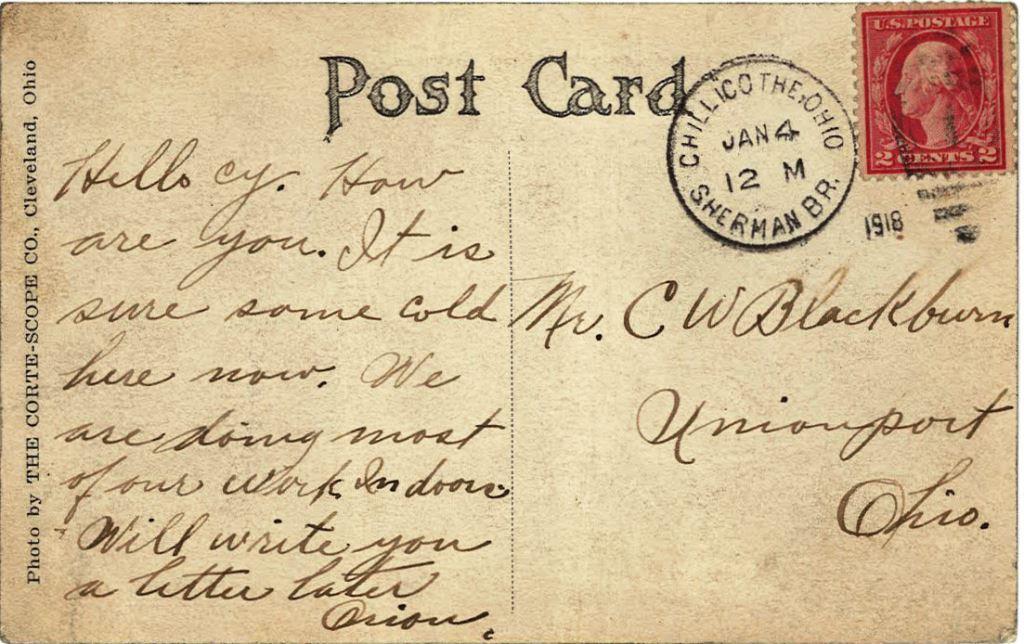 Post Card
U.S. POSTAGE
2 CENTS 2
CHILLICOTHE, OHIO
JAN 4
12 M
SHERMAN BR.
1918
Photo by THE CORTE-SCOPE CO., Cleveland, Ohio
Hello cy. How
are you. It is
sure some cold
here now. We
are doing most
of our work In doors
Will write you
a letter later
Orion.
Mr. C W Blackburn
Unionport
Ohio.